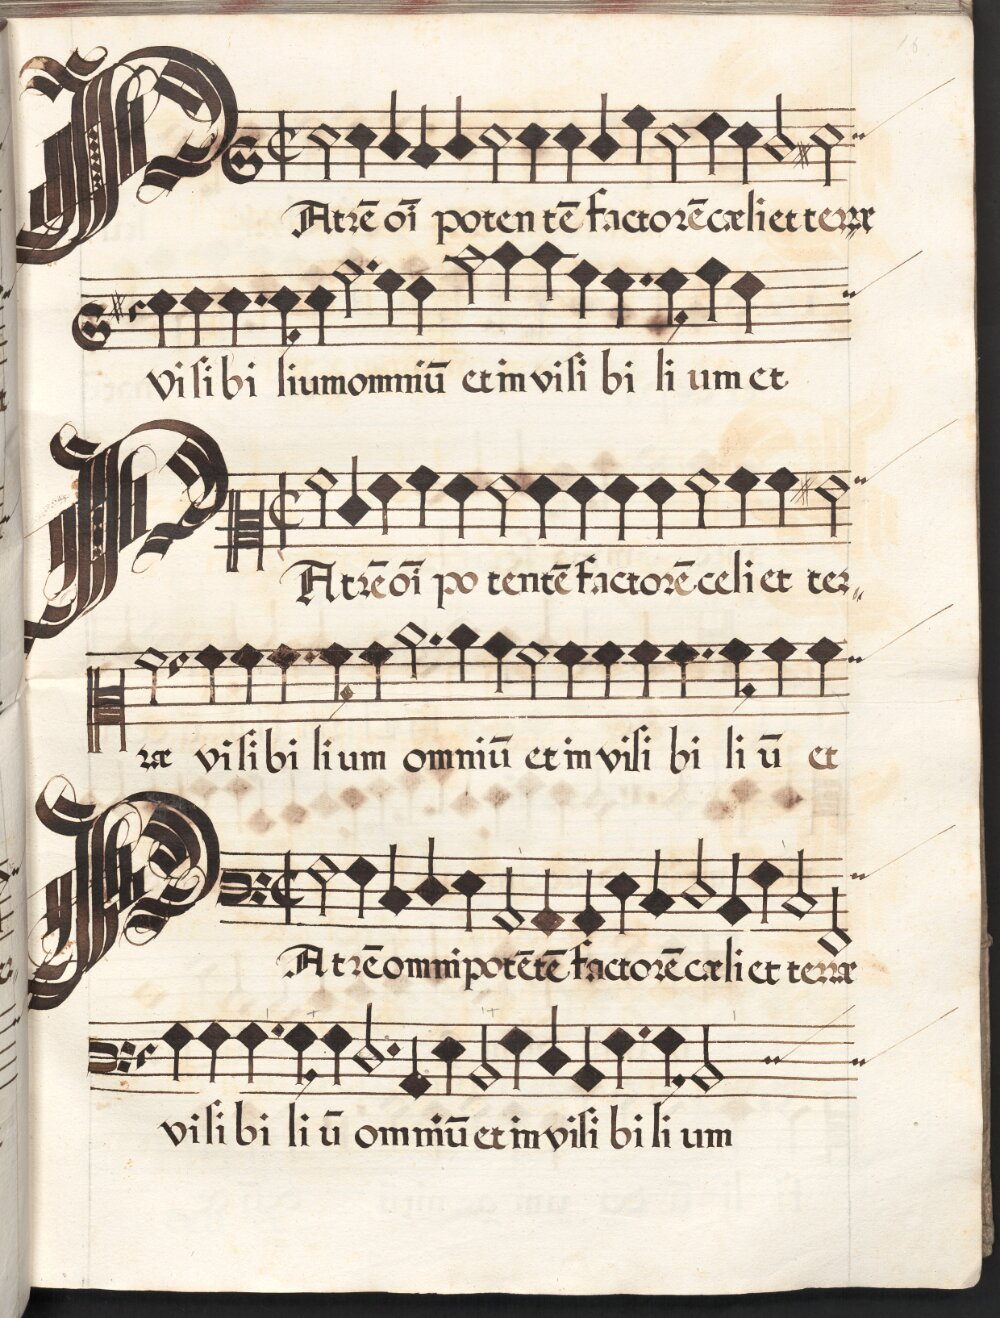 PAtrē oī poten tē factorē cæli et terræ
visi bi lium omniū et in visi bi li um et
PAtrē oī po tentē factorē celi et ter„
ræ visi bi li um omniū et in visi bi li ū et
PAtrē omnipotētē factorē cæli et terræ
visi bi li ū omniū et in visi bi li um